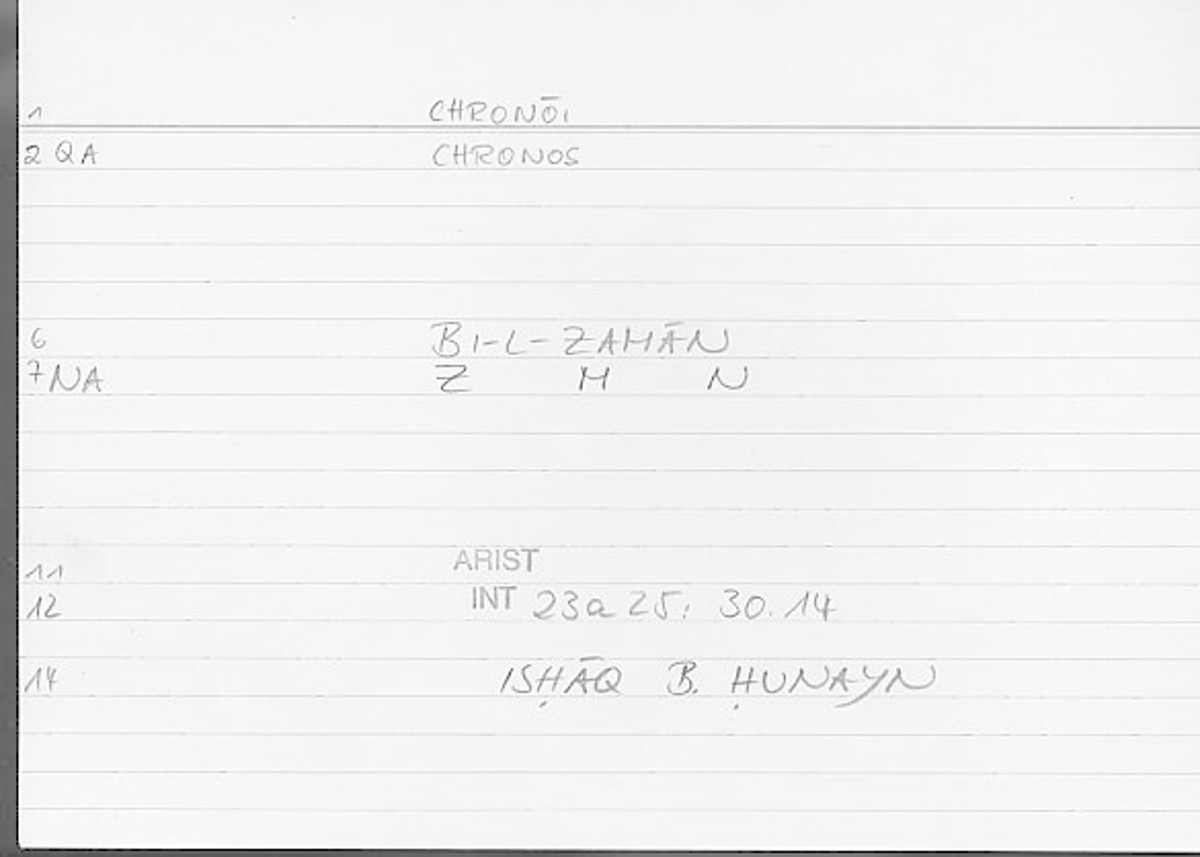 1 CHRONŌI
2 QA CHRONOS
6 BI-L-ZAMĀN
7 NA Z M N
11 ARIST
12 INT 23a25; 30.14
14 ISḤĀQ B. ḤUNAYN